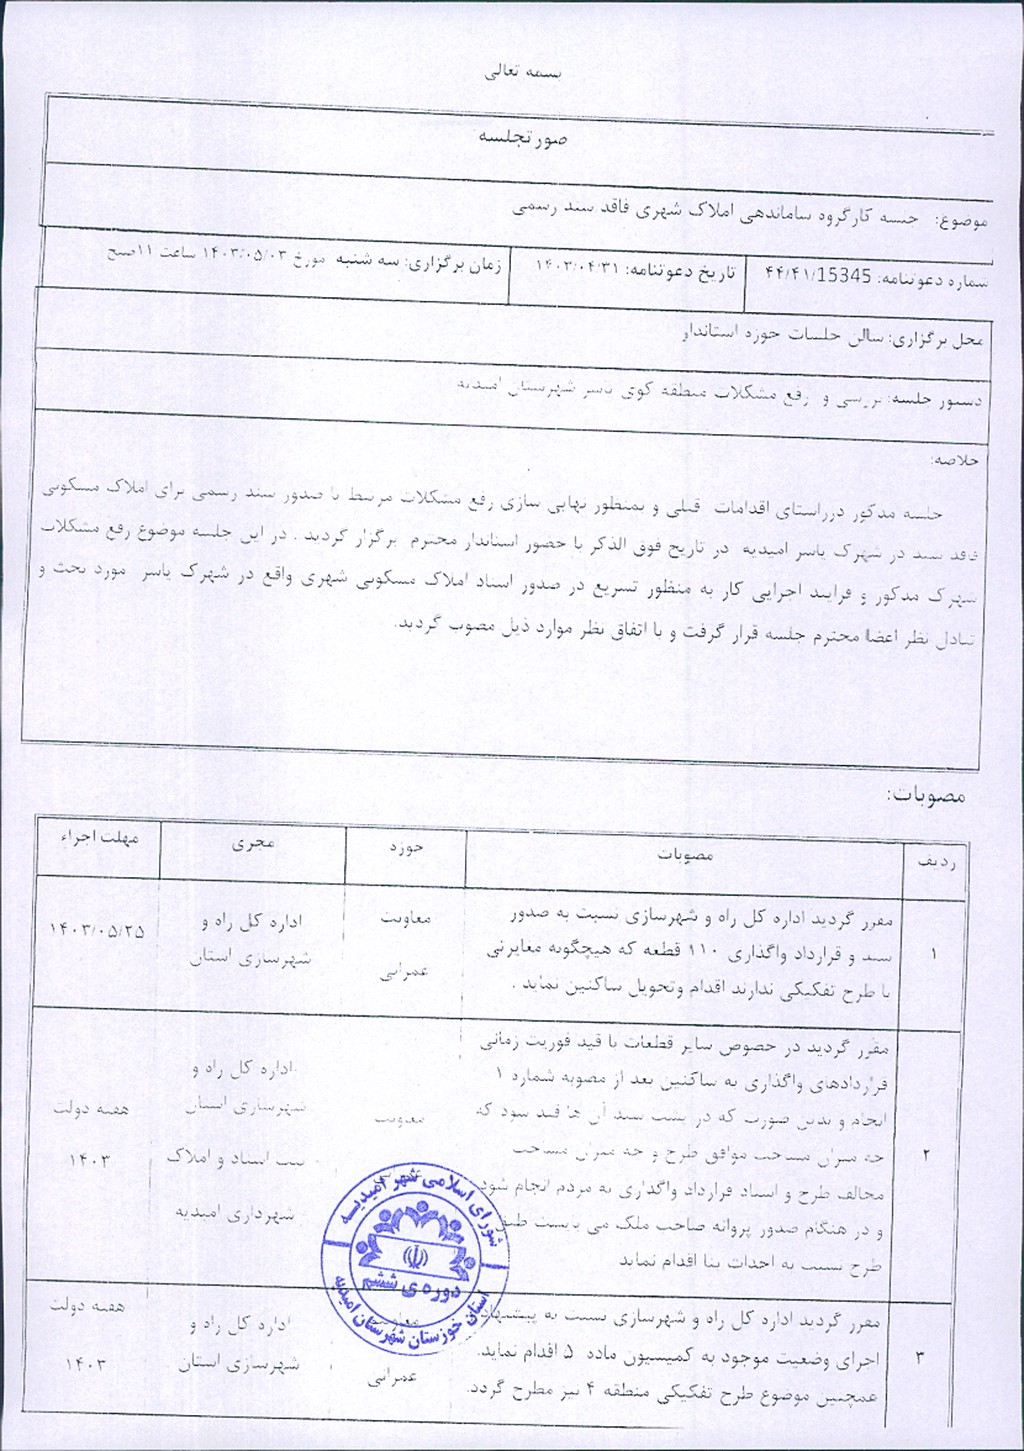 بسمه تعالی
صورتجلسه
موضوع: جلسه کارگروه ساماندهی املاک شهری فاقد سند رسمی
شماره دعوتنامه: ۴۴/۴۱/15345
تاریخ دعوتنامه: ۱۴۰۳/۰۴/۳۱
زمان برگزاری: سه شنبه مورخ ۱۴۰۳/۰۵/۰۳ ساعت ۱۱صبح
محل برگزاری: سالن جلسات حوزه استاندار
دستور جلسه: بررسی و رفع مشکلات منطقه کوی یاسر شهرستان امیدیه
خلاصه:
جلسه مذکور درراستای اقدامات قبلی و بمنظور نهایی سازی رفع مشکلات مرتبط با صدور سند رسمی برای املاک مسکونی
فاقد سند در شهرک یاسر امیدیه در تاریخ فوق الذکر با حضور استاندار محترم برگزار گردید . در این جلسه موضوع رفع مشکلات
شهرک مذکور و فرایند اجرایی کار به منظور تسریع در صدور اسناد املاک مسکونی شهری واقع در شهرک یاسر مورد بحث و
تبادل نظر اعضا محترم جلسه قرار گرفت و با اتفاق نظر موارد ذیل مصوب گردید.
مصوبات:
ردیف
مصوبات
حوزه
مجری
مهلت اجراء
۱
مقرر گردید اداره کل راه و شهرسازی نسبت به صدور
سند و قرارداد واگذاری ۱۱۰ قطعه که هیچگونه مغایرتی
با طرح تفکیکی ندارند اقدام وتحویل ساکنین نماید .
معاونت
عمرانی
اداره کل راه و
شهرسازی استان
۱۴۰۳/۰۵/۲۵
۲
مقرر گردید در خصوص سایر قطعات با قید فوریت زمانی
قراردادهای واگذاری به ساکنین بعد از مصوبه شماره ۱
انجام و بدین صورت که در پشت سند آن ها قید شود که
چه میزان مساحت موافق طرح و چه میزان مساحت
مخالف طرح و اسناد قرارداد واگذاری به مردم انجام شود
و در هنگام صدور پروانه صاحب ملک می بایست طبق
طرح نسبت به احداث بنا اقدام نماید
معاونت
اداره کل راه و
شهرسازی استان
ثبت اسناد و املاک
شهرداری امیدیه
هفته دولت
۱۴۰۳
شورای اسلامی شهر امیدیه
دوره ی ششم
استان خوزستان شهرستان امیدیه
۳
مقرر گردید اداره کل راه و شهرسازی نسبت به پیشنهاد
اجرای وضعیت موجود به کمیسیون ماده ۵ اقدام نماید.
همچنین موضوع طرح تفکیکی منطقه ۴ نیز مطرح گردد.
معاونت
عمرانی
اداره کل راه و
شهرسازی استان
هفته دولت
۱۴۰۳